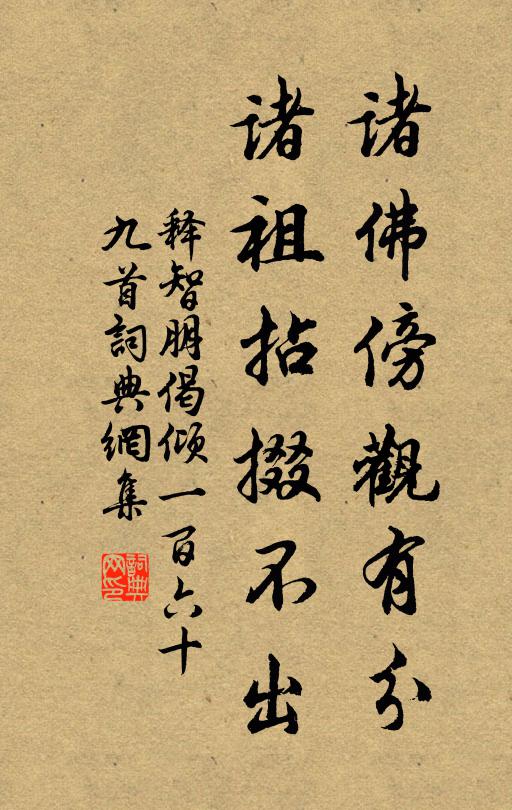 诸佛傍觀有分
诸祖拈掇不出
释智朋偈倾一百六十
九首詞典網集
詞典网印